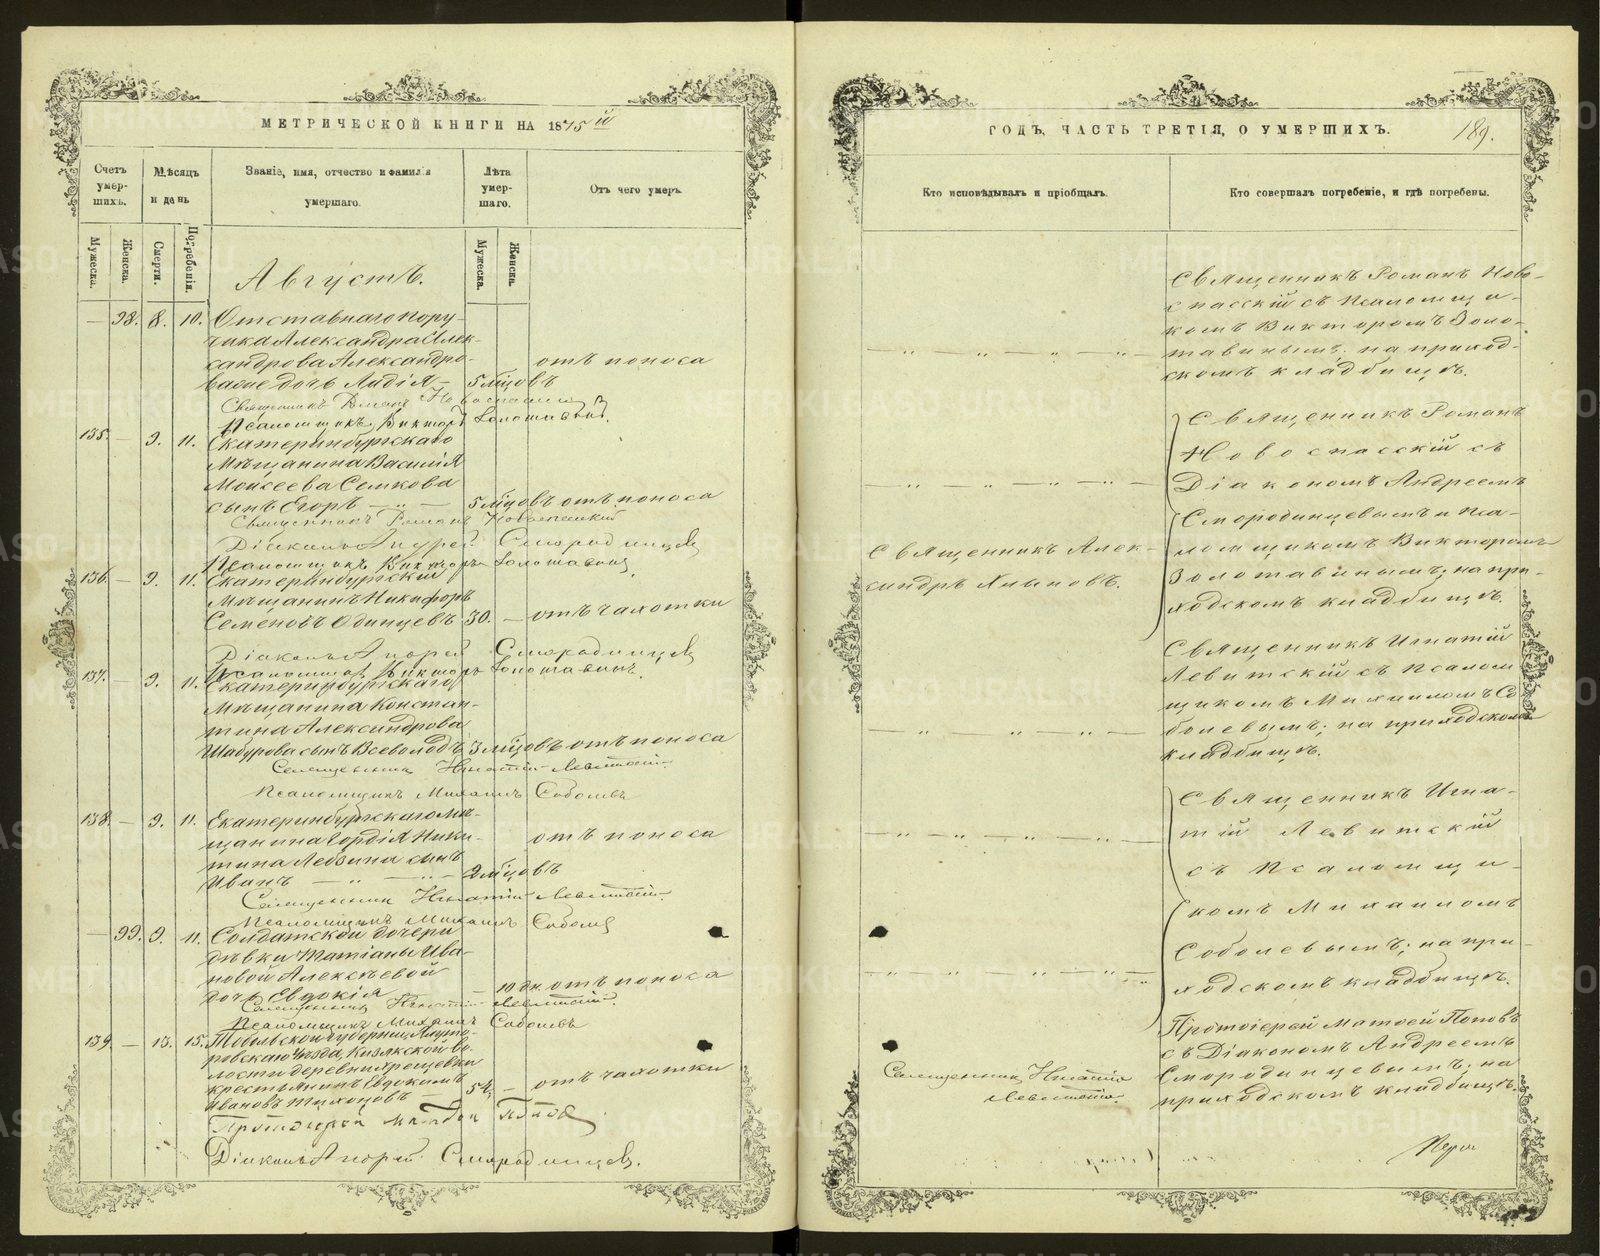 МЕТРИЧЕСКОЙ КНИГИ НА 1875 й
Счетъ умер-шихъ.
Мѣсяцъ и день
Званіе, имя, отчество и фамилія умершаго.
Лѣта умер-шаго.
Отъ чего умеръ.
Мужеска.
Женска.
Смерти.
Погребенія.
Мужеска.
Женска.
Августъ.
— 98. 8. 10. Отставнаго пору-
чика Александра Алек-
сандрова Александро-
отъ поноса
ва дочь Лидія — 5 мѣцовъ
Священникъ Романъ Новоспасскій
Псаломщикъ Викторъ Золотавинъ.
135. — 9. 11. Екатеринбургскаго
Мѣщанина Василія
Моисеева Семкова
сынъ Егоръ — „ — 5 мѣцовъ отъ поноса
Священникъ Романъ Новоспасскій
Діаконъ Андрей Смородинцевъ
Псаломщикъ Викторъ Золотавинъ
136. — 9. 11. Екатеринбургскій
Мѣщанинъ Никифоръ
Семеновъ Одинцевъ 30. — отъ чахотки
Діаконъ Андрей Смородинцевъ
Псаломщикъ Викторъ Золотавинъ.
137. — 9. 11. Екатеринбургскаго
Мѣщанина Констан-
тина Александрова
Шабурова сынъ Всеволодъ 3 мѣцовъ отъ поноса
Священникъ Игнатій Левитскій
Псаломщикъ Михаилъ Соболевъ
138. — 9. 11. Екатеринбургскаго мѣ-
щанина Гордія Ники-
отъ поноса
тина Лебзина сынъ
Иванъ — „ — „ — 2 мѣцовъ
Священникъ Игнатій Левитскій
Псаломщикъ Михаилъ Соболевъ
— 99. 9. 11. Солдатской дочери
дѣвки Татіаны Ива-
новой Алексѣевой
дочь Евдокія — 10 дн. отъ поноса
Священникъ Игнатій Левитскій
Псаломщикъ Михаилъ Соболевъ
139. — 13. 15. Тобольской губерніи Ялуто-
ровскаго уѣзда, Кизякской во-
лости деревни
крестьянинъ Евдокимъ
Ивановъ Тихоновъ — 54 — отъ чахотки
Протоіерей Матѳей Поповъ
Діаконъ Андрей Смородинцевъ.
ГОДЪ, ЧАСТЬ ТРЕТІЯ, О УМЕРШИХЪ.
189.
Кто исповѣдывалъ и пріобщалъ.
Кто совершалъ погребеніе, и гдѣ погребены.
Священникъ Романъ Ново-
спасскій съ Псаломщи-
комъ Викторомъ Золо-
— „ — „ — „ —
тавинымъ; на приход-
скомъ кладбищѣ.
Священникъ Романъ
Новоспасскій съ
— „ — „ — „ —
Діакономъ Андреемъ
Смородинцевымъ и Пса-
Священникъ Алек-
ломщикомъ Викторомъ
сандръ Хлыновъ.
Золотавинымъ; на при-
ходскомъ кладбищѣ.
Священникъ Игнатій
Левитскій съ Псалом
щикомъ Михаиломъ Со
— „ — „ —
болевымъ; на приходскомъ
кладбищѣ.
Священникъ Игна-
— „ — „ —
тій Левитскій
съ Псаломщи-
комъ Михаиломъ
Соболевымъ; на при-
— „ — „ — „ —
ходскомъ кладбищѣ.
Протоіерей Матѳей Поповъ
съ Діакономъ Андреемъ
Священникъ Игнатій
Смородинцевымъ; на
Левитскій.
приходскомъ кладбищѣ.